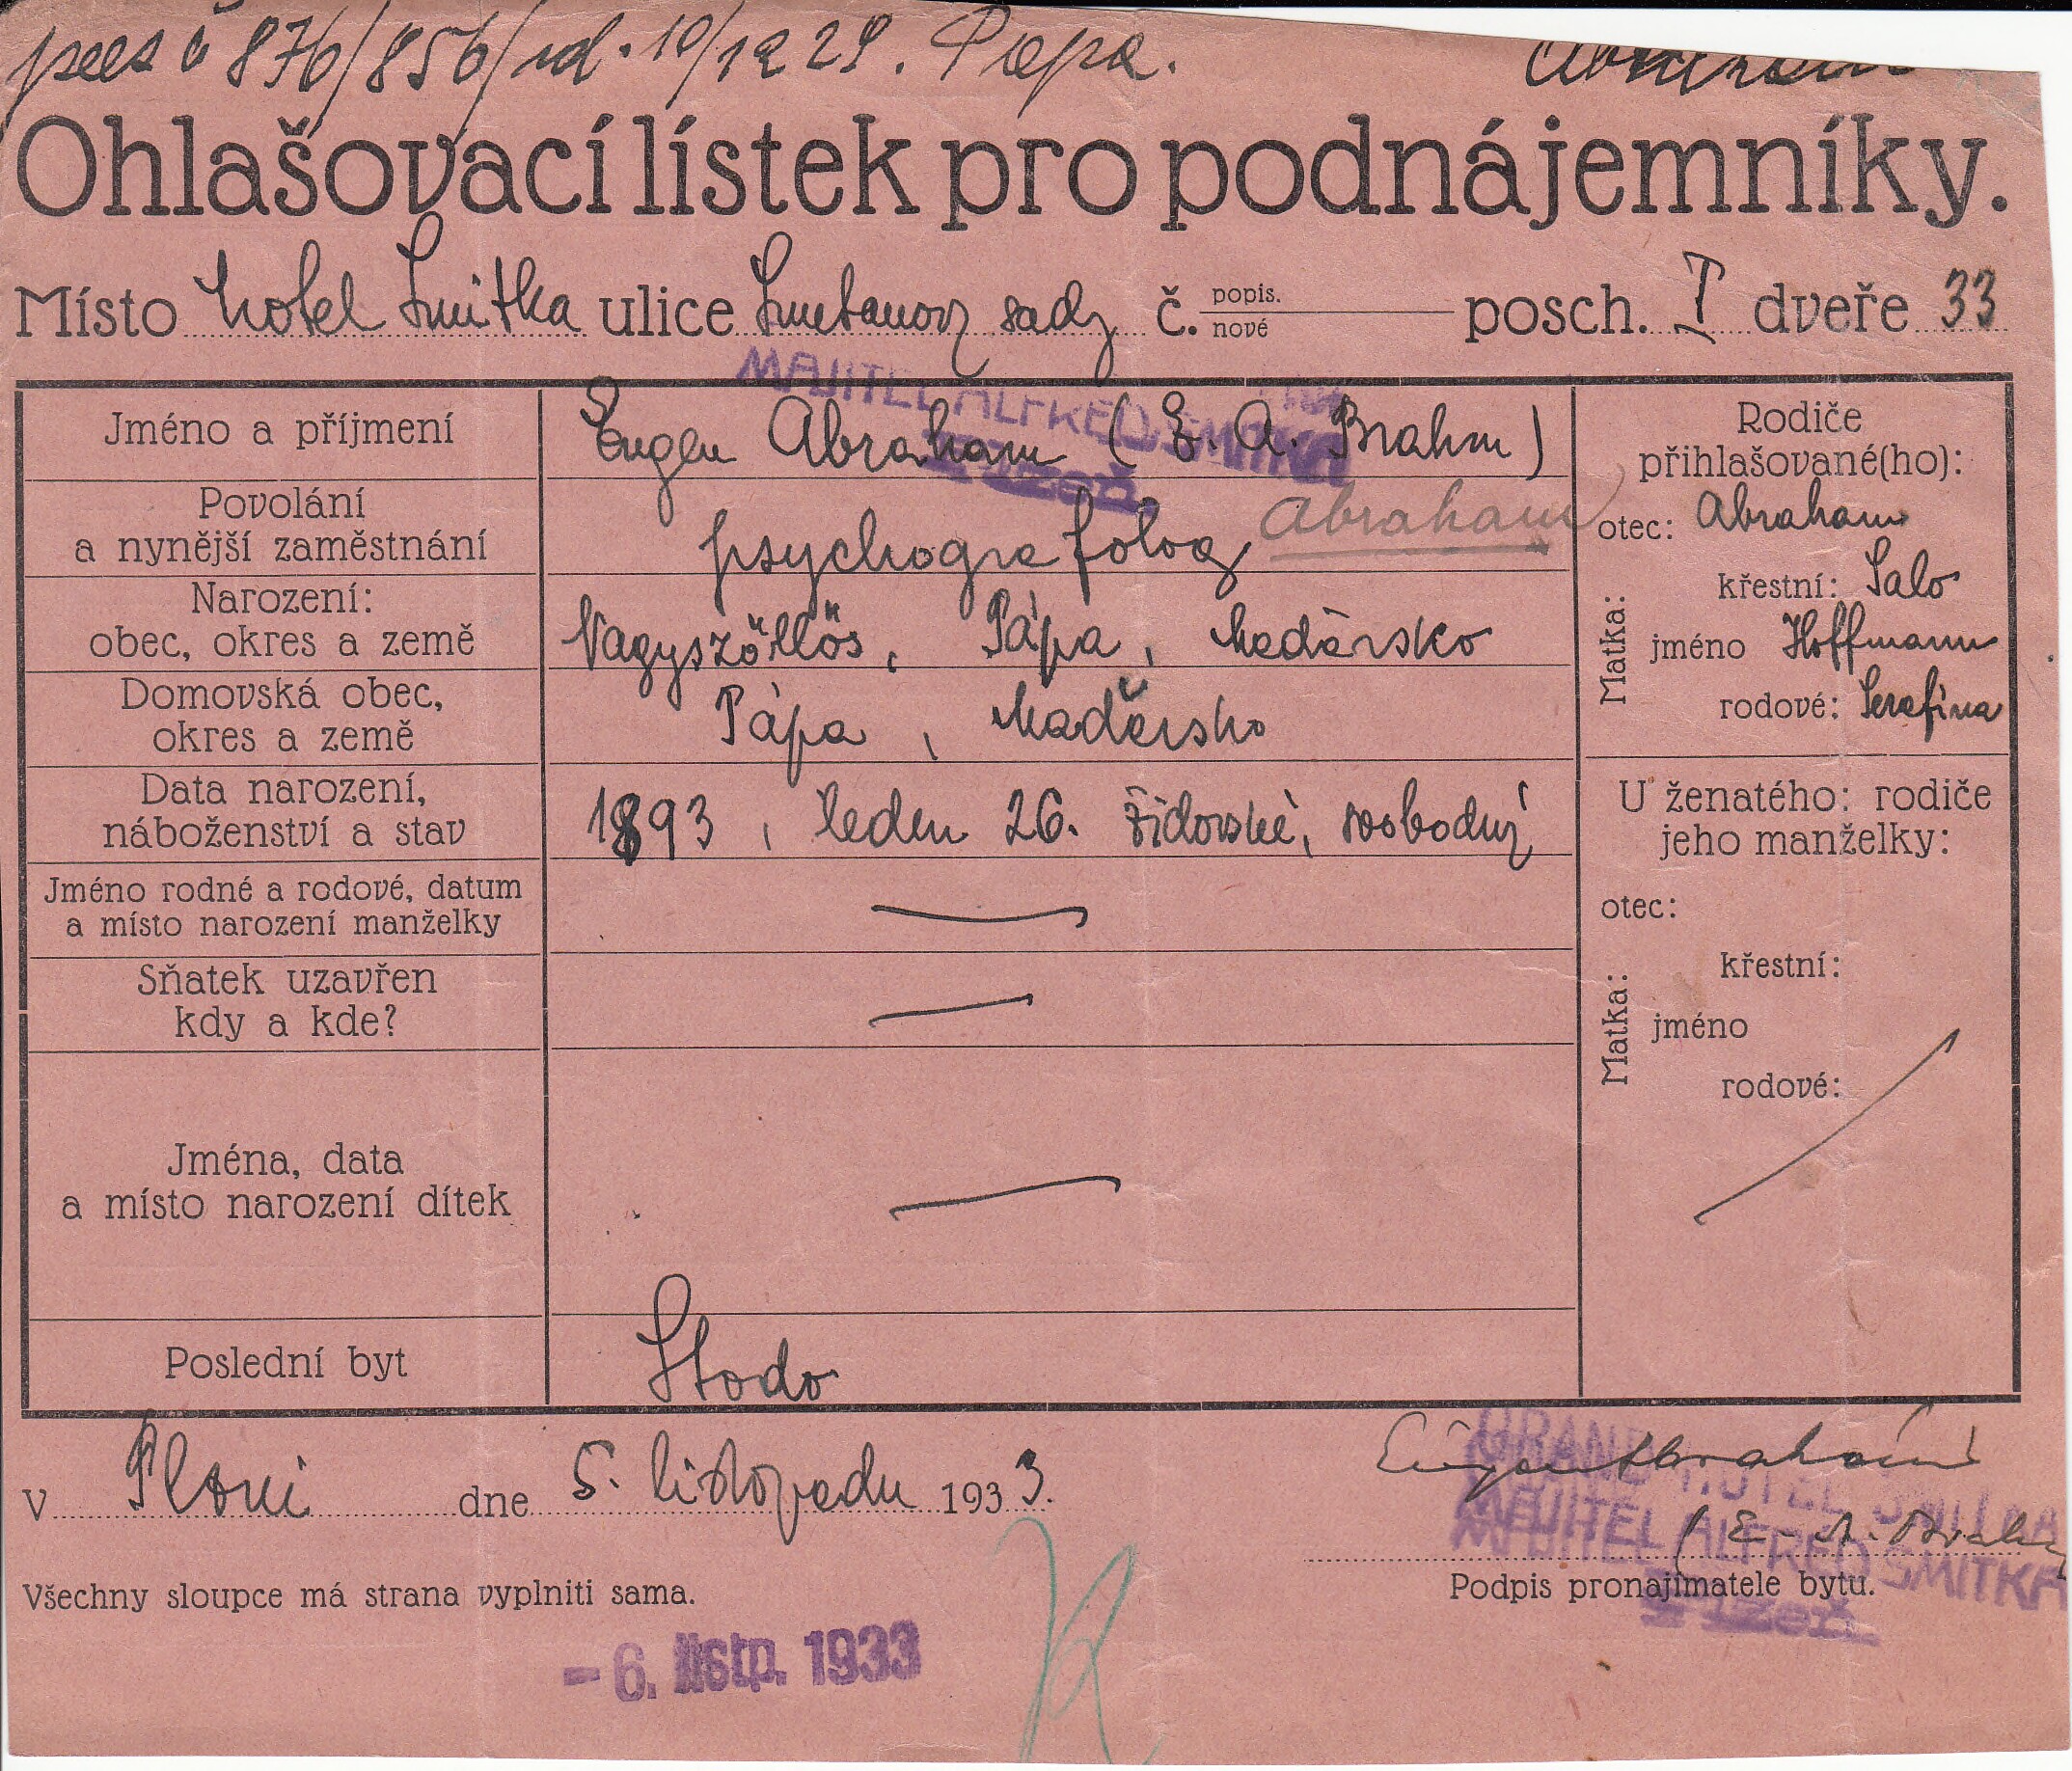 876/856/ 10/12 29. Papa.
Ohlašovací lístek pro podnájemníky.
Místo hotel Smitka ulice Smetanovy sady č. popis. nové posch. I dveře 33
MAJITEL ALFRED SMITKA
Plzeň
Jméno a příjmení Eugen Abraham (E. A. Brahm)
Povolání
a nynější zaměstnání psychografolog Abraham
Narození:
obec, okres a země Nagyszöllös, Pápa, Madársko
Domovská obec,
okres a země Pápa, Maďarsko
Data narození,
náboženství a stav 1893, leden 26. židovské, svobodný
Jméno rodné a rodové, datum
a místo narození manželky
Sňatek uzavřen
kdy a kde?
Jména, data
a místo narození dítek
Poslední byt Stodo
Rodiče
přihlašované(ho):
otec: Abraham
Matka:
křestní: Salo
jméno Hoffmann
rodové: Serafina
U ženatého: rodiče
jeho manželky:
otec:
Matka:
křestní:
jméno
rodové:
V Plzni dne 5. listopadu 1933.
Eugen Abraham
(E. A. Brahm
GRAND HOTEL SMITKA
MAJITEL ALFRED SMITKA
Plzeň
Podpis pronajímatele bytu.
Všechny sloupce má strana vyplniti sama.
- 6. listp. 1933